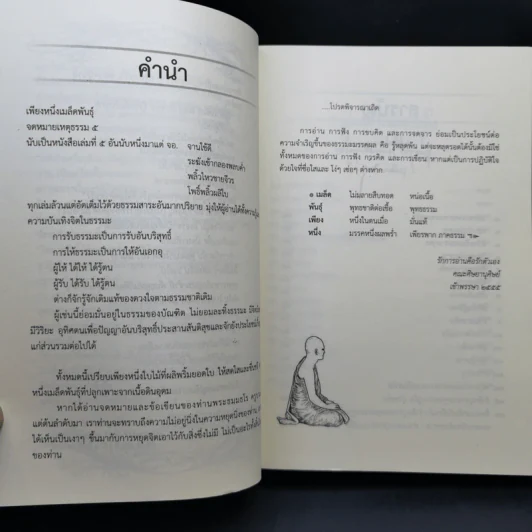 คำนำ
เพียงหนึ่งเมล็ดพันธุ์
จดหมายเหตุธรรม ๕
นับเป็นหนังสือเล่มที่ ๕ อันนับหนึ่งมาแต่ จอ. จานใช้ดี
ระฆังเข้ากลองพลบค่ำ
พลิ้วไหวชายจีวร
โพธิ์พลิ้วผลิใบ
ทุกเล่มล้วนแต่อัดเต็มไว้ด้วยธรรมสาระอันมากปริยาย มุ่งให้ผู้อ่านได้ทั้งความรู้
ความบันเทิงจิตในธรรมะ
การรับธรรมะเป็นการรับอันบริสุทธิ์
การให้ธรรมะเป็นการให้อันเอกอุ
ผู้ให้ ได้ให้ ได้รู้ตน
ผู้รับ ได้รับ ได้รู้ตน
ต่างก็จักรู้จักเดิมแท้ของดวงใจตามธรรมชาติเดิม
ผู้เช่นนี้ย่อมมั่นอยู่ในธรรมของบัณฑิต ไม่ยอมละทิ้งธรรมะ
มีวิริยะ อุทิศตนเพื่อปัญญาอันบริสุทธิ์ประสานสันติสุขและจักยังประโยชน์
แก่ส่วนรวมต่อไปได้
ทั้งหมดนี้เปรียบเพียงหนึ่งใบไม้ที่ผลิพริ้มยอดใบ ให้สดใสและ
หนึ่งเมล็ดพันธุ์ที่ปลูกเพาะจากเนื้อดินอุดม
หากได้อ่านจดหมายและข้อเขียนของท่านพระธมมธโร
แต่ต้นลำดับมา เราท่านจะทราบถึงความไม่อยู่นิ่งในความหยุดนิ่งของท่าน
ได้เห็นเป็นเงาๆ ขึ้นมากับการหยุดจิตเอาไว้กับสิ่งซึ่งไม่มี
ของท่าน
....โปรดพิจารณาเถิด
การอ่าน การฟัง การขบคิด และการจดจาร ย่อมเป็นประโยชน์ต่อ
ความจำเริญขึ้นของธรรมมรรคผล คือ รู้หลุดพ้น แต่จะหลุดรอดได้นั้นต้องมิใช่
ทั้งหมดของการอ่าน การฟัง การคิด และการเขียน หากแต่เป็นการปฏิบัติใจ
ด้วยใจที่ซื่อใสและ โง่ๆ เซ่อๆ ต่างหาก
๑ เมล็ด ไม่มลายสืบทอด หน่อเนื้อ
พันธุ์ พุทธชาติต่อเชื้อ พุทธธรรม
เพียง หนึ่งในตนเมื่อ มั่นแท้
หนึ่ง มรรคหนึ่งผลพร่ำ เพียรพาก ภาคธรรม ฯ๛
รักการอ่านคือรักตัวเอง
คณะศิษยานุศิษย์
เข้าพรรษา ๒๕๕๕